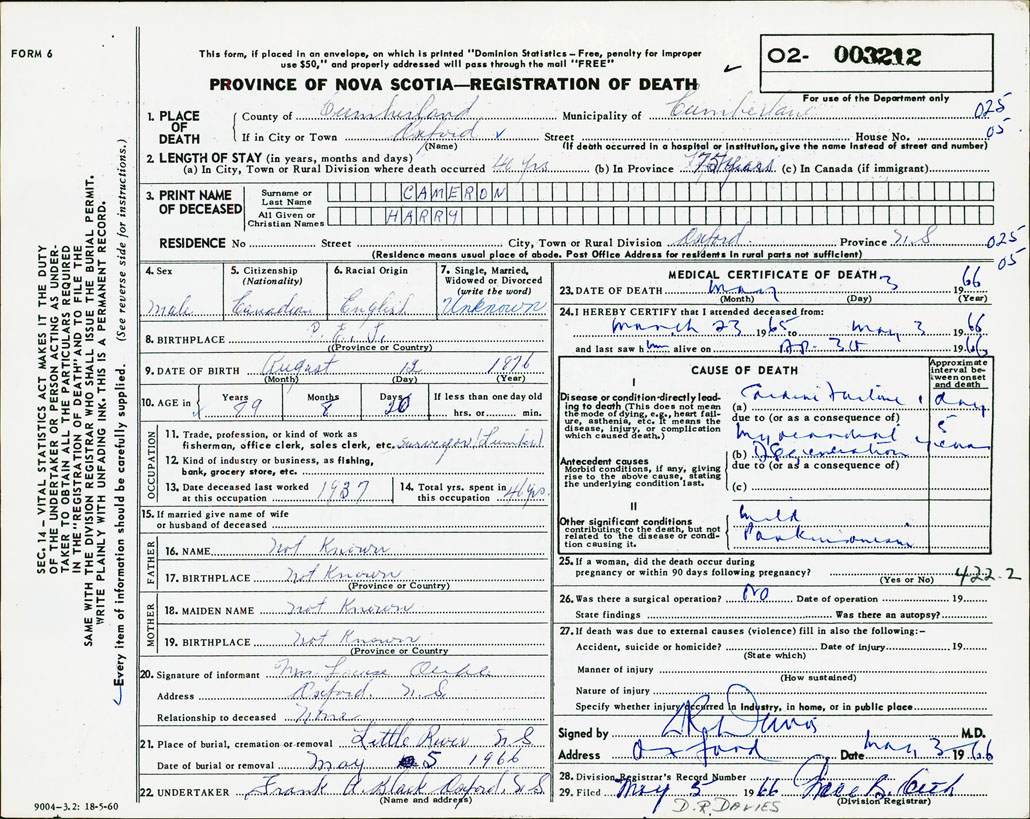 FORM 6
This form, if placed in an envelope, on which is printed "Dominion Statistics – Free, penalty for improper
use $50," and properly addressed will pass through the mail "FREE"
02- 003212
PROVINCE OF NOVA SCOTIA—REGISTRATION OF DEATH
For use of the Department only
1. PLACE OF DEATH
County of Cumberland Municipality of Cumberland 025
If in City or Town Oxford Street House No. 05
(Name) (If death occurred in a hospital or institution, give the name instead of street and number)
2. LENGTH OF STAY (in years, months and days)
(a) In City, Town or Rural Division where death occurred 41 yrs (b) In Province 75 years (c) In Canada (if immigrant)
3. PRINT NAME OF DECEASED
Surname or Last Name CAMERON
All Given or Christian Names HARRY
RESIDENCE No Street City, Town or Rural Division Oxford Province N.S 025
(Residence means usual place of abode. Post Office Address for residents in rural parts not sufficient) 05
4. Sex
Male
5. Citizenship (Nationality)
Canadian
6. Racial Origin
English
7. Single, Married, Widowed or Divorced (write the word)
Unknown
8. BIRTHPLACE P.E.I.
(Province or Country)
9. DATE OF BIRTH August 12 1876
(Month) (Day) (Year)
10. AGE in Years 89 Months 8 Days 20 If less than one day old
hrs. or min.
OCCUPATION
11. Trade, profession, or kind of work as
fisherman, office clerk, sales clerk, etc. Surveyor (Lumber)
12. Kind of industry or business, as fishing,
bank, grocery store, etc.
13. Date deceased last worked at this occupation 1937
14. Total yrs. spent in this occupation 40 yrs.
15. If married give name of wife
or husband of deceased
FATHER
16. NAME Not Known
17. BIRTHPLACE Not Known
(Province or Country)
MOTHER
18. MAIDEN NAME Not Known
19. BIRTHPLACE Not Known
(Province or Country)
20. Signature of informant Mrs. Louise
Address Oxford N.S
Relationship to deceased None
21. Place of burial, cremation or removal Little River N.S
Date of burial or removal May 5 1966
22. UNDERTAKER Frank A. Black Oxford N.S
(Name and address)
9004-3.2: 18-5-60
MEDICAL CERTIFICATE OF DEATH
23. DATE OF DEATH May 3 1966
(Month) (Day) (Year)
24. I HEREBY CERTIFY that I attended deceased from:
March 23 1965 to May 3 1966
and last saw him alive on Ap. 30 1966
CAUSE OF DEATH
Approximate interval between onset and death
I
Disease or condition directly leading to death (This does not mean the mode of dying, e.g., heart failure, asthenia, etc. It means the disease, injury, or complication which caused death.)
(a) Cardiac Failure 1 day
due to (or as a consequence of)
Antecedent causes
Morbid conditions, if any, giving rise to the above cause, stating the underlying condition last.
(b) Myocardial Degeneration 5 years
due to (or as a consequence of)
(c)
II
Other significant conditions
contributing to the death, but not related to the disease or condition causing it.
Mild
Parkinsonism
25. If a woman, did the death occur during
pregnancy or within 90 days following pregnancy? 422.2
(Yes or No)
26. Was there a surgical operation? No Date of operation 19
State findings Was there an autopsy?
27. If death was due to external causes (violence) fill in also the following:–
Accident, suicide or homicide? Date of injury 19
(State which)
Manner of injury
(How sustained)
Nature of injury
Specify whether injury occurred in industry, in home, or in public place
Signed by D R Davies M.D.
Address Oxford Date May 3 1966
28. Division Registrar's Record Number
29. Filed May 5 1966
(Division Registrar)
D.R. DAVIES
SEC. 14 – VITAL STATISTICS ACT MAKES IT THE DUTY
OF THE UNDERTAKER OR PERSON ACTING AS UNDER-
TAKER TO OBTAIN ALL THE PARTICULARS REQUIRED
IN THE "REGISTRATION OF DEATH" AND TO FILE THE
SAME WITH THE DIVISION REGISTRAR WHO SHALL ISSUE THE BURIAL PERMIT.
WRITE PLAINLY WITH UNFADING INK. THIS IS A PERMANENT RECORD.
Every item of information should be carefully supplied. (See reverse side for instructions.)